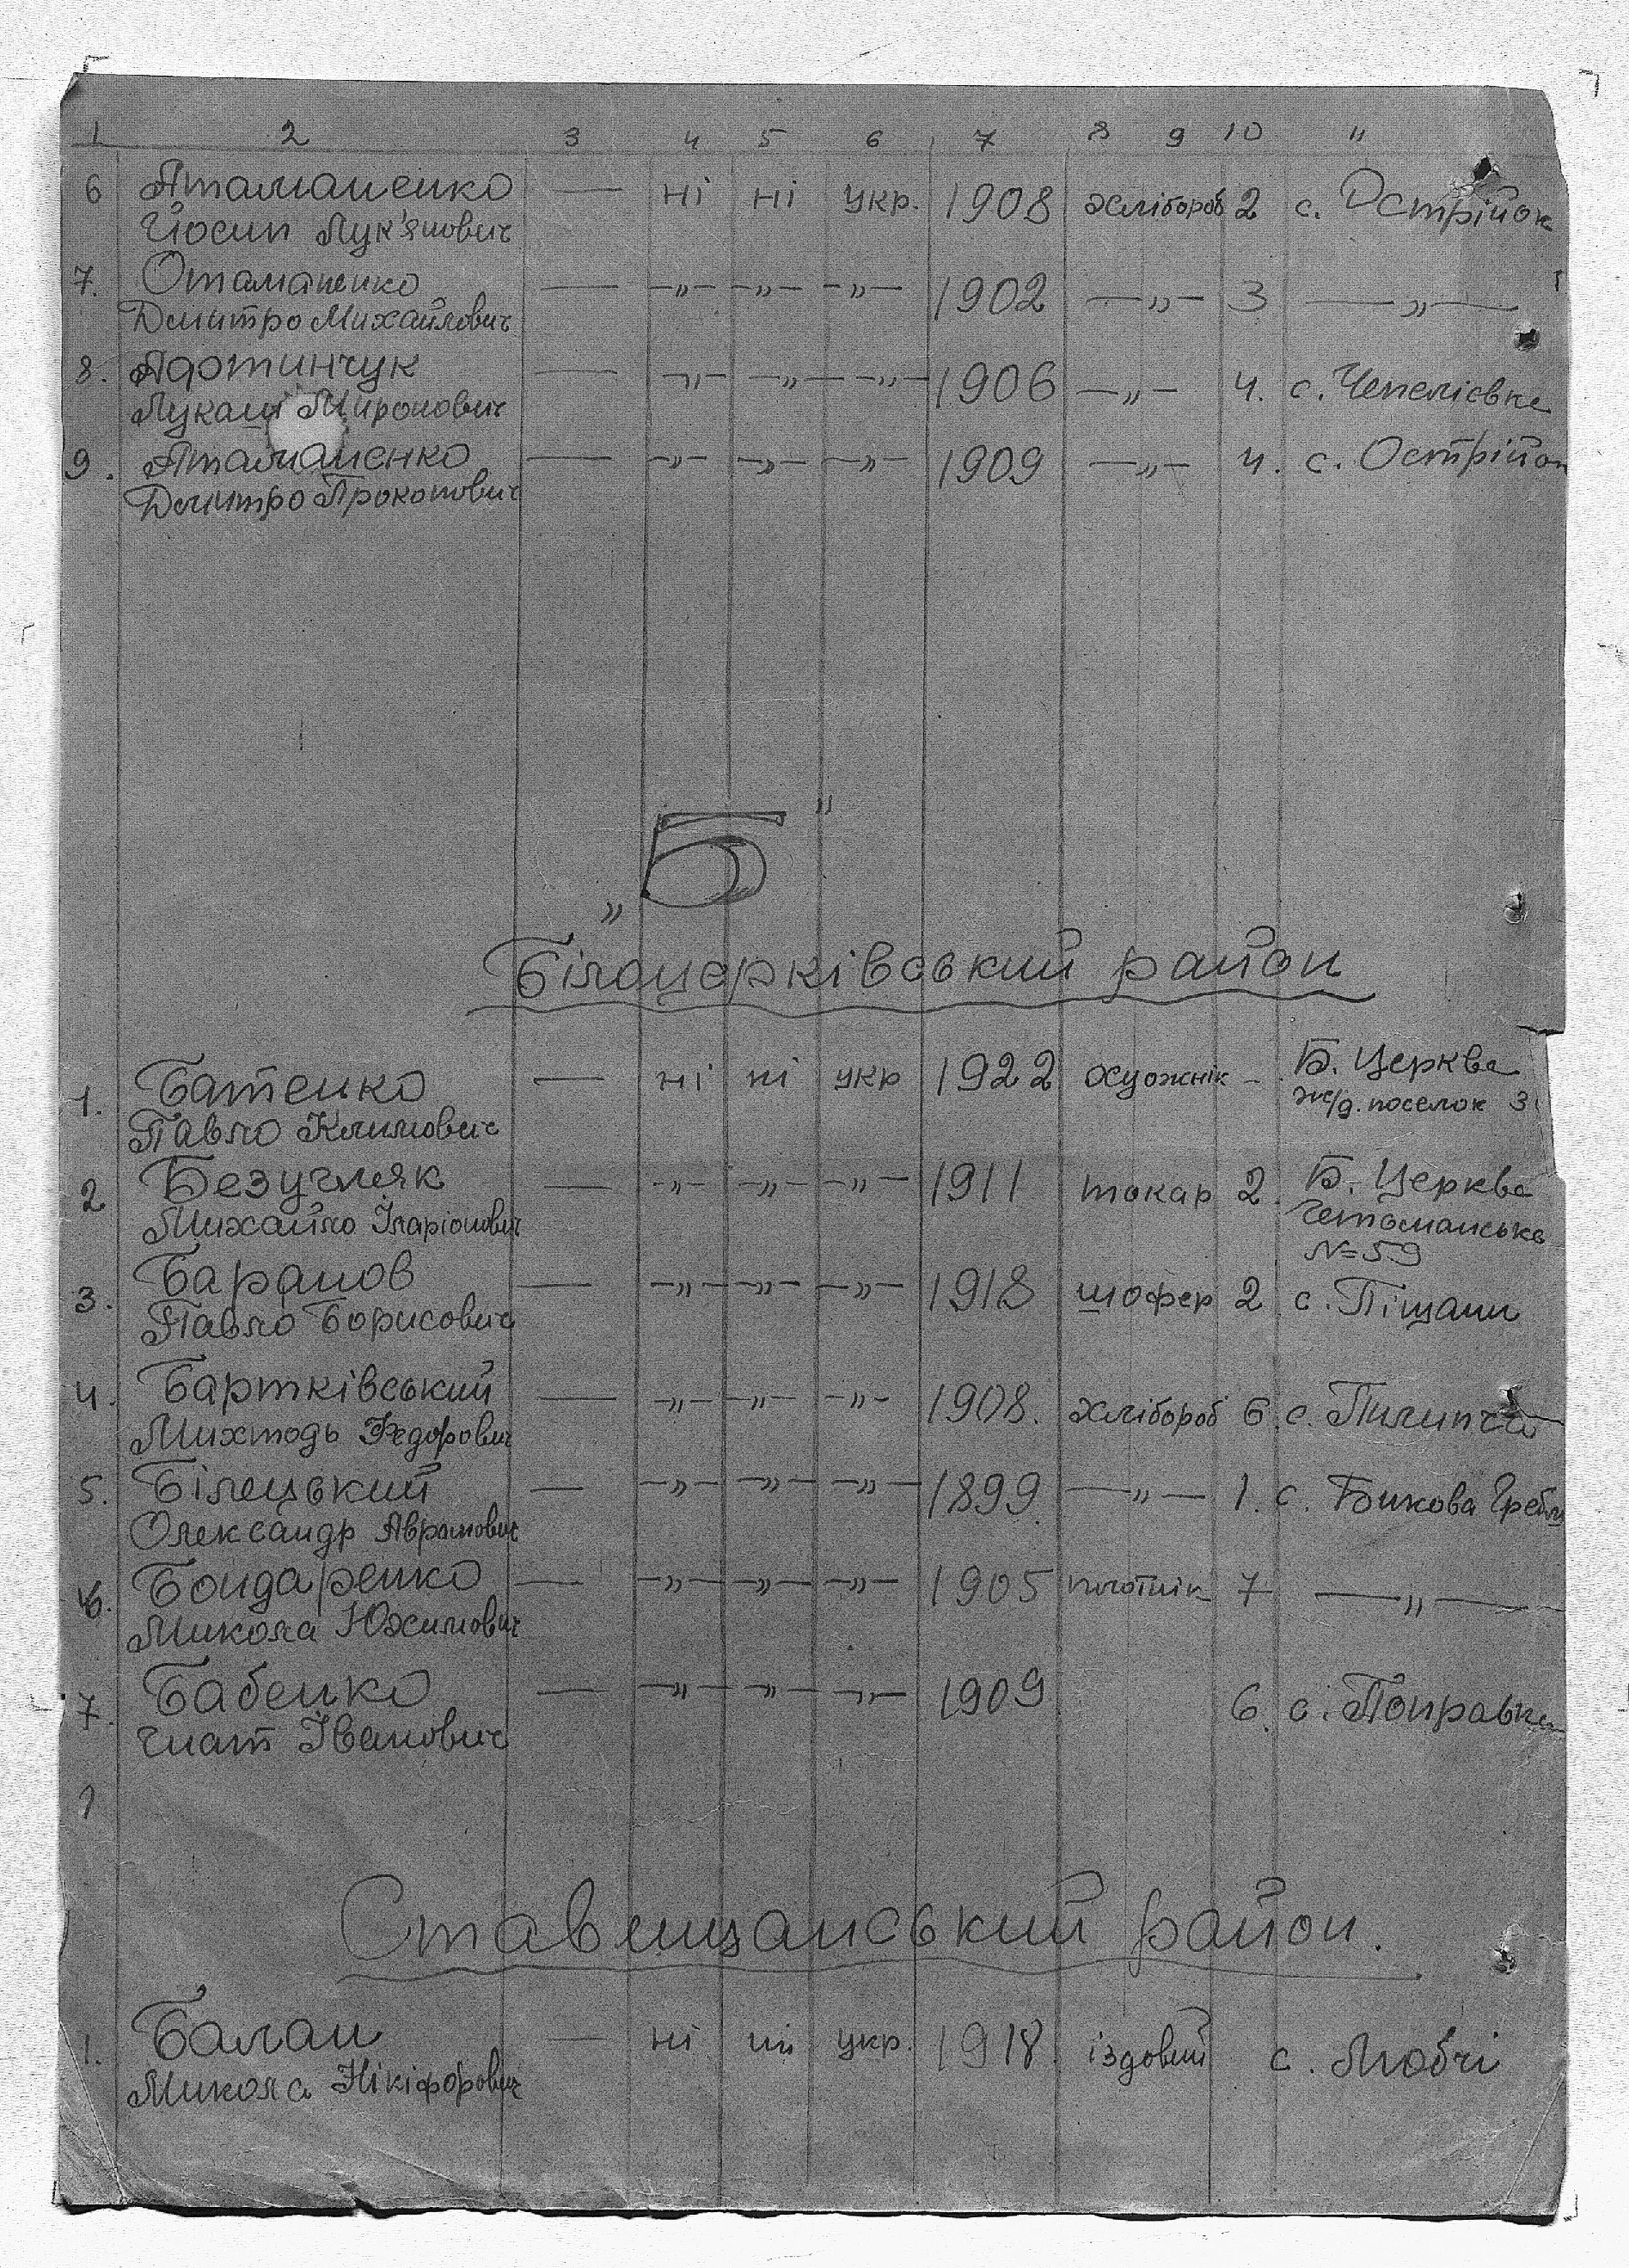 1 2 3 4 5 6 7 8 9 10 11
6 Атаманенко — ні ні укр. 1908 хлібороб 2 с. Острійок
Йосип Лук'янович
7. Отаманенко — —„— —„— —„— 1902 —„— 3 —„—
Дмитро Михайлович
8. Адотинчук — —„— —„— —„— 1906 —„— 4. с. Чепеліевке
Лукаш Миронович
9. Атаманенко — —„— —„— —„— 1909 —„— 4. с. Острійок
Дмитро Прокопович
„Б"
Білоцерківський район
1. Батенко — ні ні укр 1922 художнік — Б. Церква
Павло Климович ж/д. поселок 3
2 Безучляк — —„— —„— —„— 1911 токар 2. Б. Церква
Михайло Іларіонович Гетьманська
№=59
3. Баранов — —„— —„— —„— 1918 шофер 2 с. Піщани
Павло Борисович
4. Бартківський — —„— —„— —„— 1908. хлібороб 6 с. Пилипча
Федорович
5. Білецький — —„— —„— —„— 1899. —„— 1. с. Бикова Гребля
Олександр Аврамович
6. Бондаренко — —„— —„— —„— 1905 плотнік 7 —„—
Микола Юхимович
7. Бабенко — —„— —„— —„— 1909 6. с. Поправка
Гнат Іванович
Ставищанський район.
1. Балан — ні ні укр. 1918. їздовий с. Любчі
Микола Нікіфорович